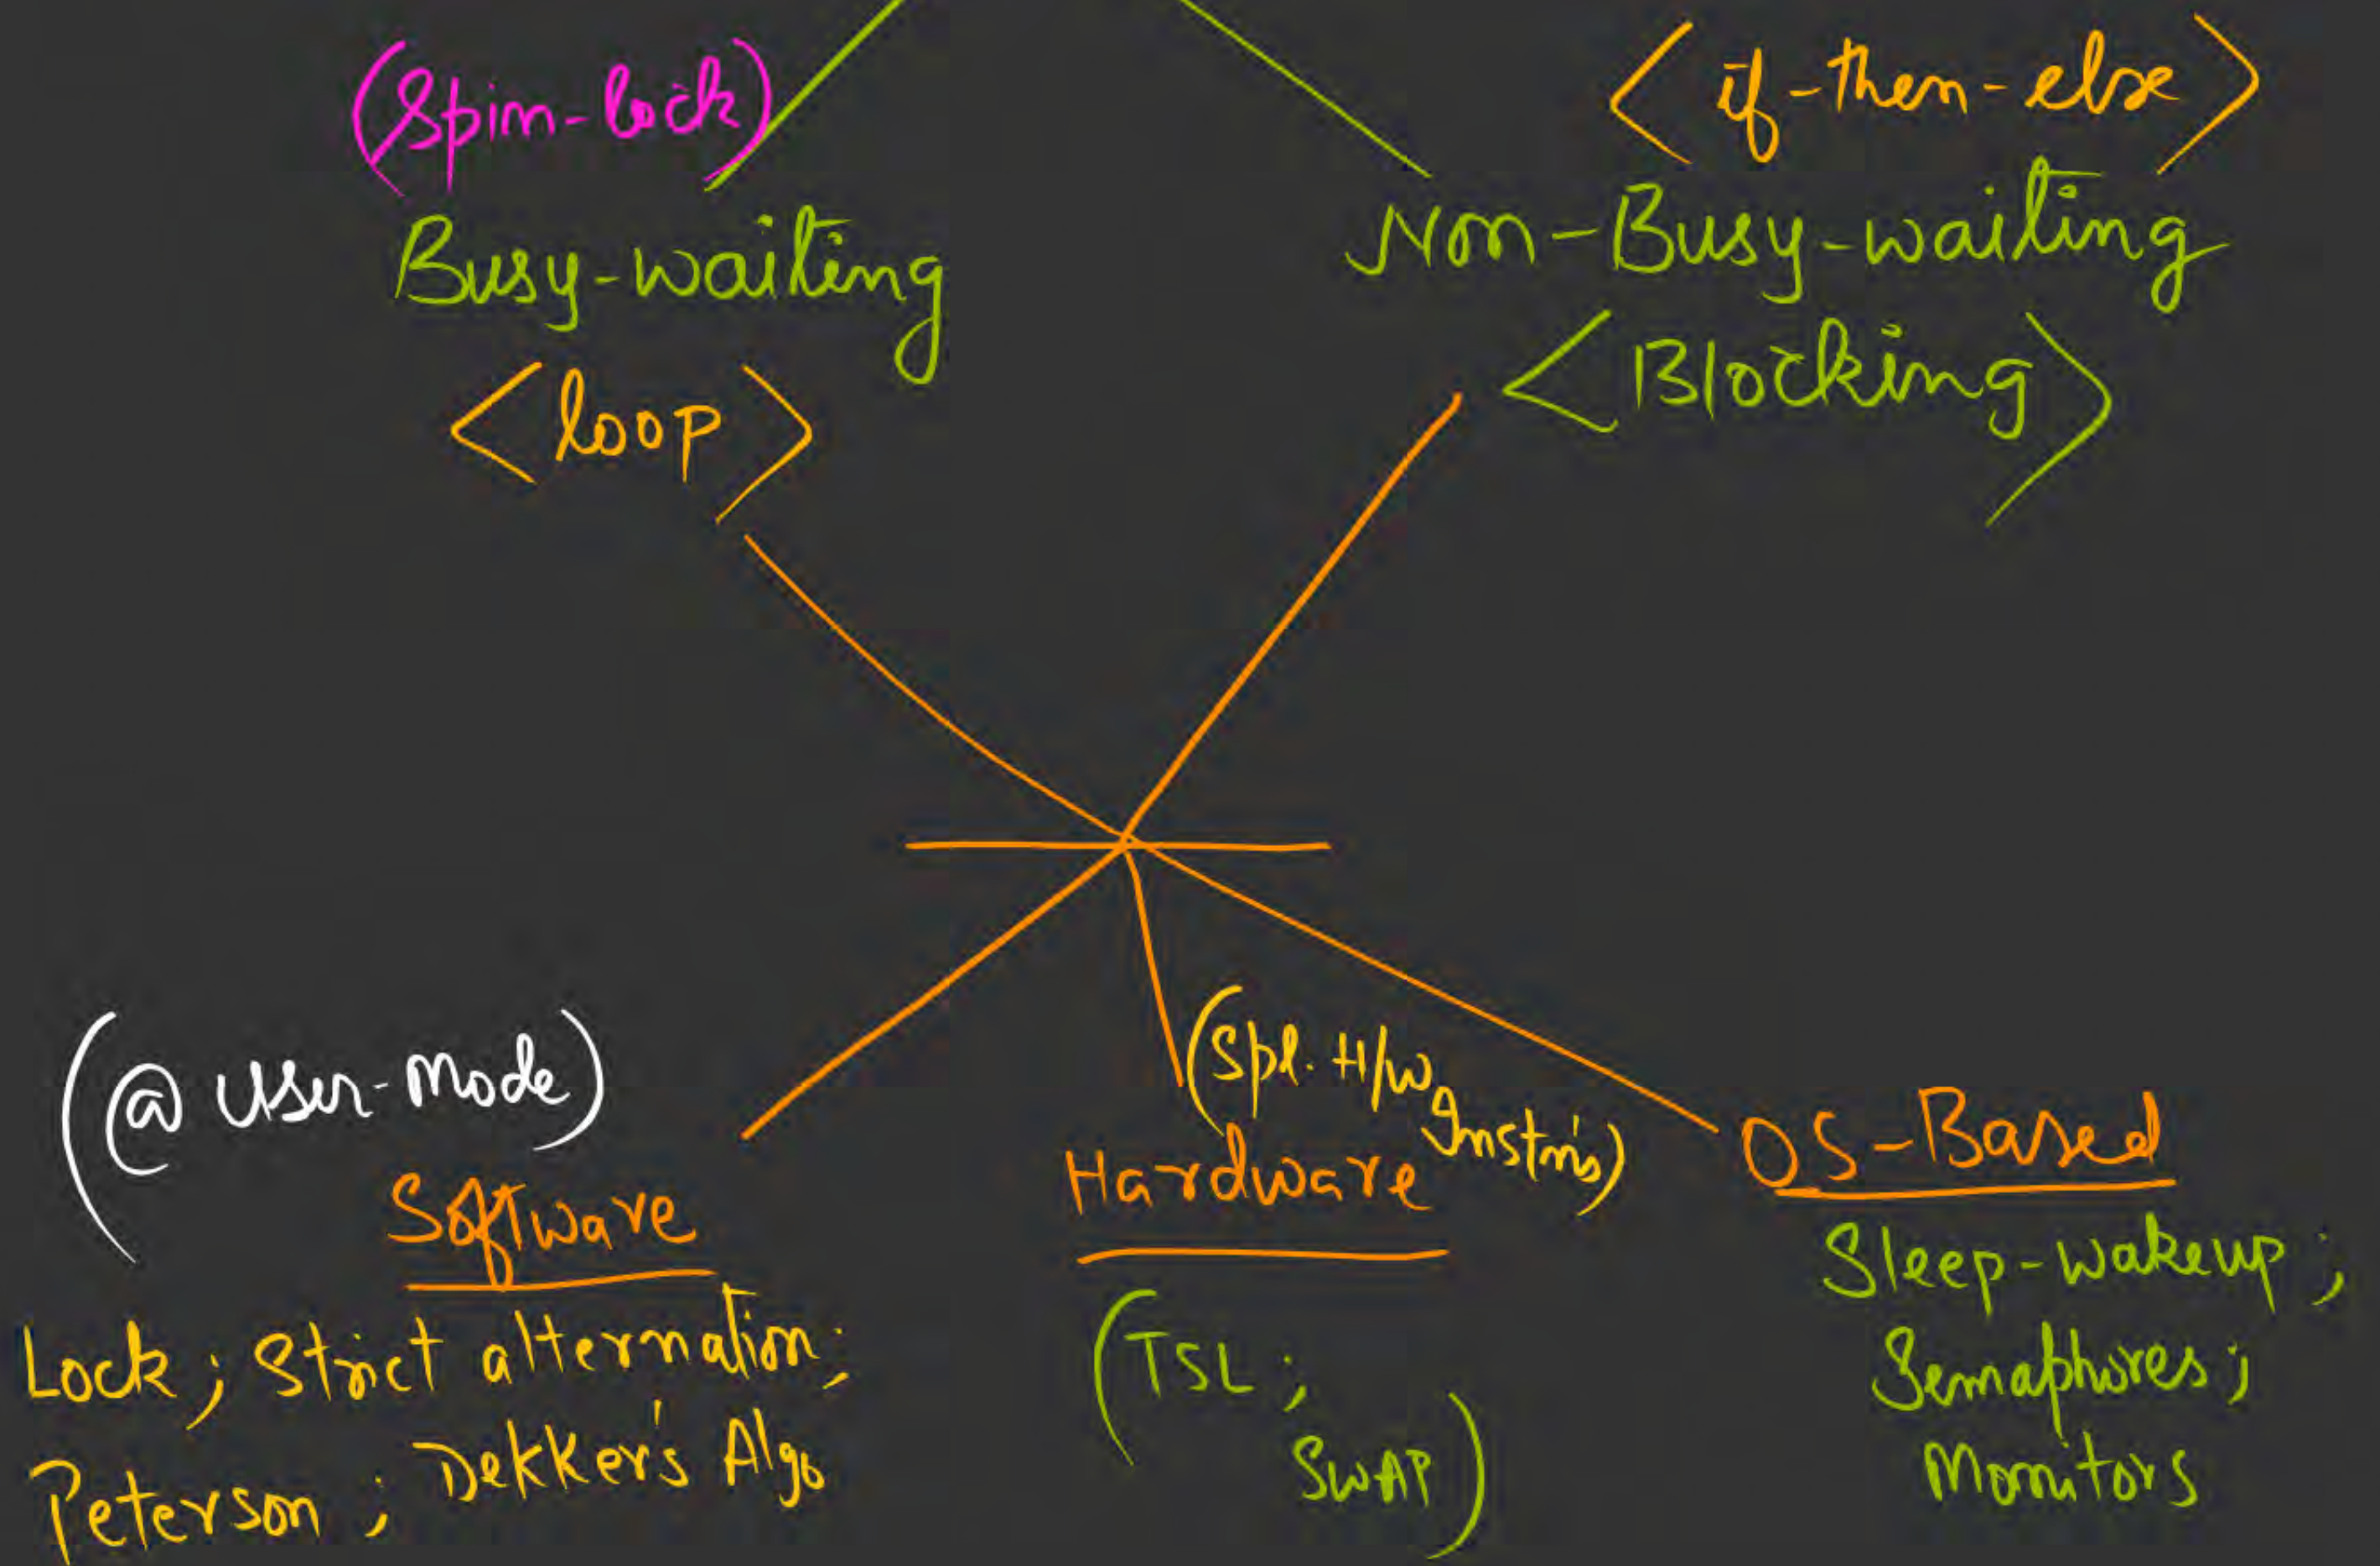 (Spin-lock)
<if-then-else>
Busy-waiting
Non-Busy-waiting
<loop>
<Blocking>
(@ User-Mode)
Software
Lock; Strict alternation;
Peterson; Dekker's Algo
(Spl. H/w
Instrn's)
Hardware
(TSL;
SWAP)
OS-Based
Sleep-wakeup;
Semaphores;
Monitors